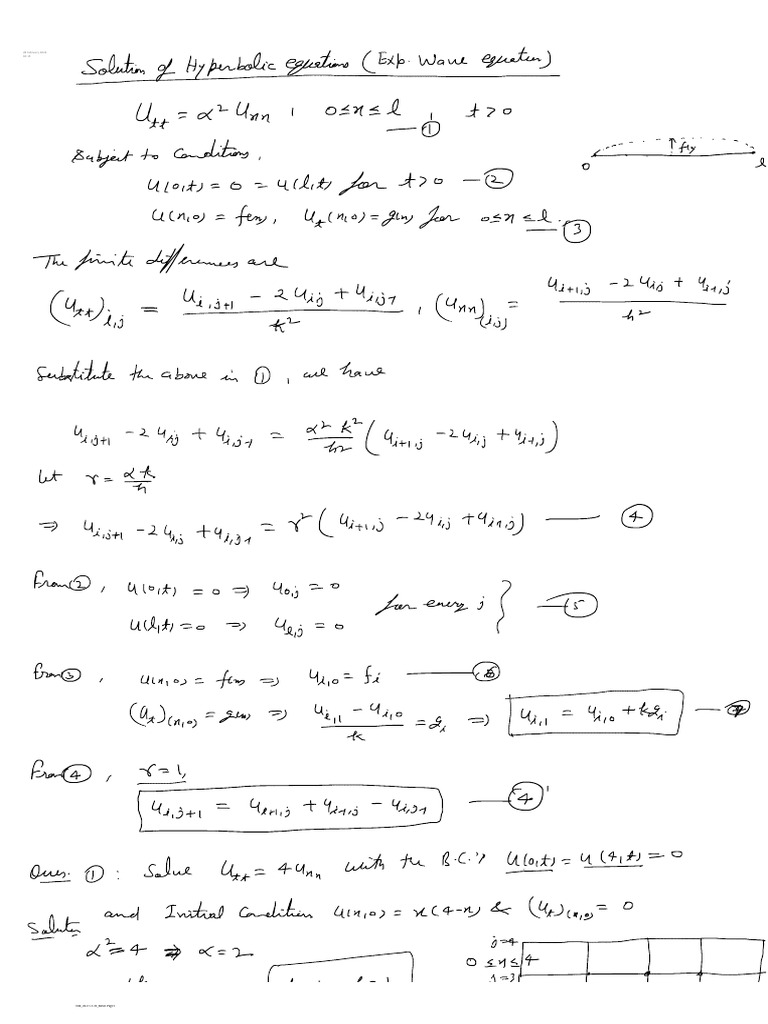 Solution of Hyperbolic equations (Exp. Wave equation)
U_tt = α² U_xx , 0≤x≤l , t>0 — ①
Subject to Conditions,
f(x)
0 l
u(0,t) = 0 = u(l,t) for t>0 — ②
u(x,0) = f(x), U_t(x,0) = g(x) for 0≤x≤l. — ③
The finite differences are
(U_tt)_{i,j} = (U_{i,j+1} − 2U_{ij} + U_{i,j-1}) / k² , (U_xx)_{(i,j)} = (U_{i+1,j} − 2U_{ij} + U_{i-1,j}) / h²
Substitute the above in ①, we have
U_{i,j+1} − 2U_{ij} + U_{i,j-1} = α²k²/h² (U_{i+1,j} − 2U_{i,j} + U_{i-1,j})
Let r = αk/h
⇒ U_{i,j+1} − 2U_{i,j} + U_{i,j-1} = r² (U_{i+1,j} − 2U_{i,j} + U_{i-1,j}) — ④
From ②, u(0,t) = 0 ⇒ U_{0,j} = 0
for every j } — ⑤
U(l,t) = 0 ⇒ U_{l,j} = 0
From ③, u(x,0) = f(x) ⇒ U_{i,0} = f_i — ⑥
(U_t)_{(x,0)} = g(x) ⇒ (U_{i,1} − U_{i,0}) / k = g_i ⇒ U_{i,1} = U_{i,0} + kg_i — ⑦
From ④, r = 1,
U_{i,j+1} = U_{i+1,j} + U_{i-1,j} − U_{i,j-1} — ④'
Ques. ①: Solve U_tt = 4U_xx with the B.C.'s U(0,t) = U(4,t) = 0
and Initial Condition U(x,0) = x(4−x) & (U_t)_{(x,0)} = 0
Solution
α² = 4 ⇒ α = 2
j=4
0 ≤ x ≤ 4